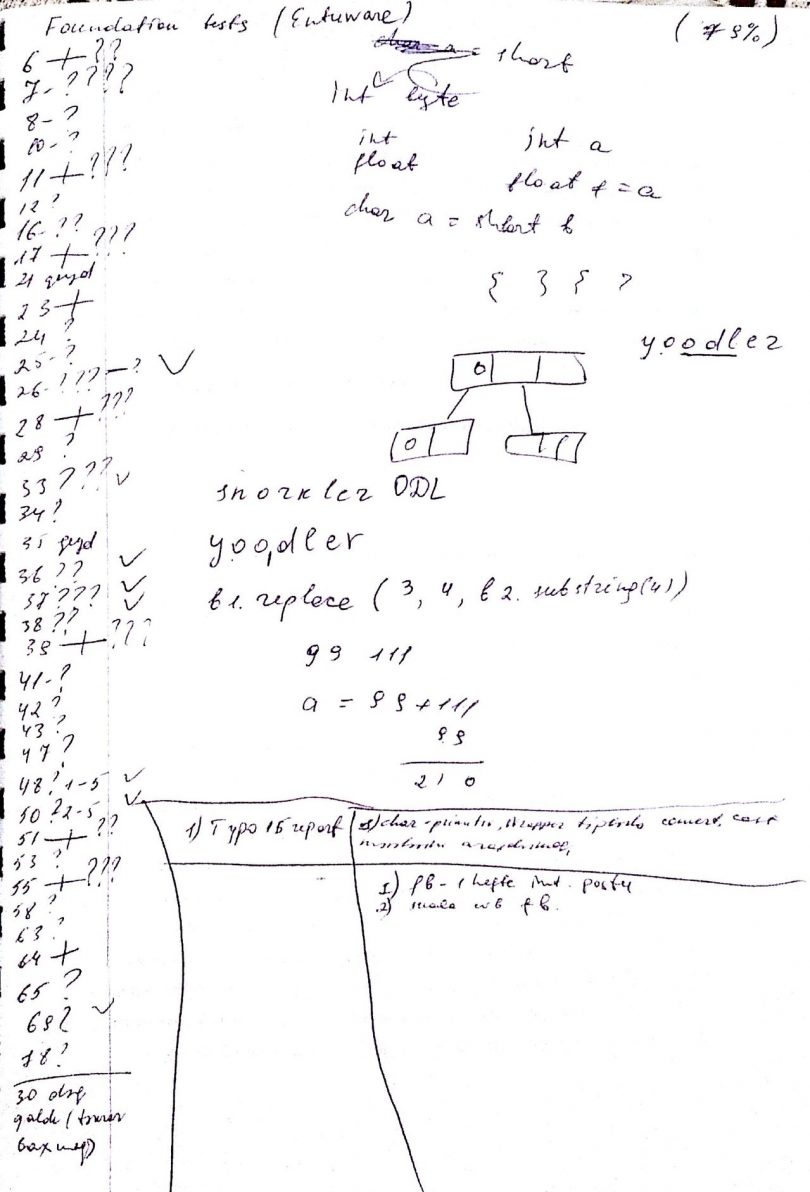 Foundation tests (Entuware)
(79%)
6 + ??
7 - ????
8 - ?
10 - ?
11 + ???
12 ?
16 - ??
17 + ???
21 qeyd
23 +
24 ?
25 - ?
26 - ??? - ? ✓
28 + ???
29 ?
33 ??? ✓
34 ?
35 qeyd
36 ?? ✓
37 ??? ✓
38 ?? ✓
39 + ???
41 - ?
42 ?
43 ?
47 ?
48 ? 1-5 ✓
50 ? 2-5 ✓
51 + ??
53 ?
55 + ???
58 ?
63 ?
64 +
65 ?
69 ? ✓
78 ?
30 dəq
qaldı
a = short
int ✓ byte
int int a
float float f = a
char a = short b
{ } { }
yoodler
0
0
snorkler ODL
yoo,dler
b1.replace (3, 4, b2.substring(4))
99 111
a = 99 + 111
99
210
1) Typo 15 report
1) fb - 1 həftə
2)